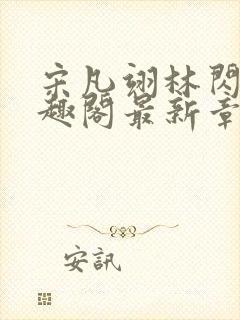 宋凡翊林閃
趣閣最新章
安訊